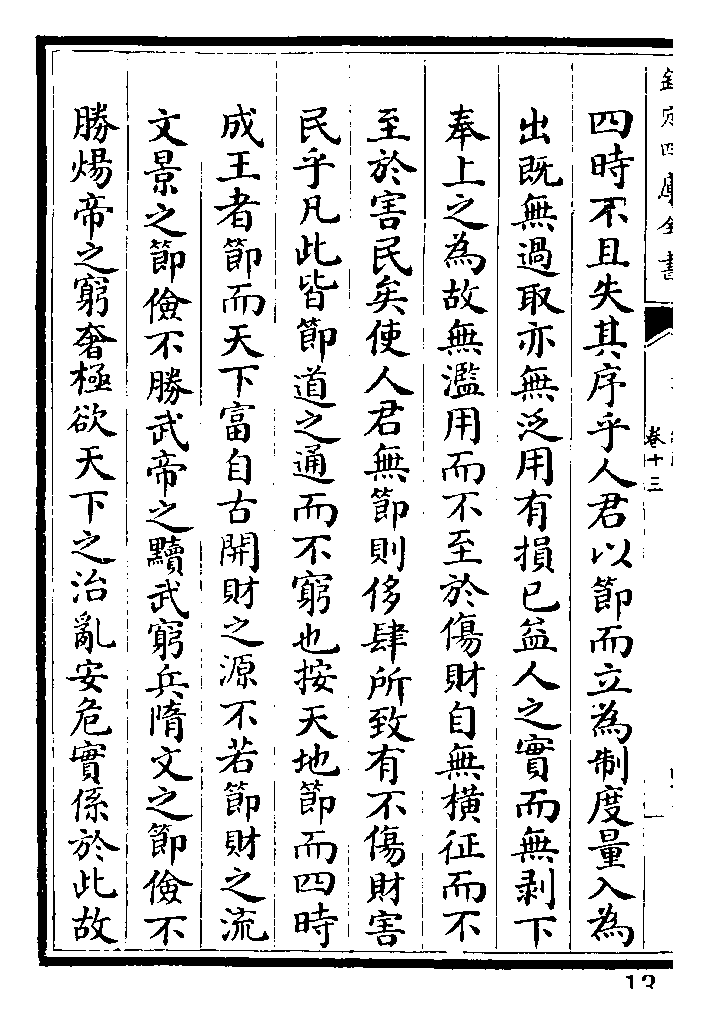 欽定四庫全書
卷十三
四時不且失其序乎人君以節而立為制度量入為
出既無過取亦無泛用有損已益人之實而無剥下
奉上之為故無濫用而不至於傷財自無橫征而不
至於害民矣使人君無節則侈肆所致有不傷財害
民乎凡此皆節道之通而不窮也按天地節而四時
成王者節而天下富自古開財之源不若節財之流
文景之節儉不勝武帝之黷武窮兵隋文之節儉不
勝煬帝之窮奢極欲天下之治亂安危實係於此故
13